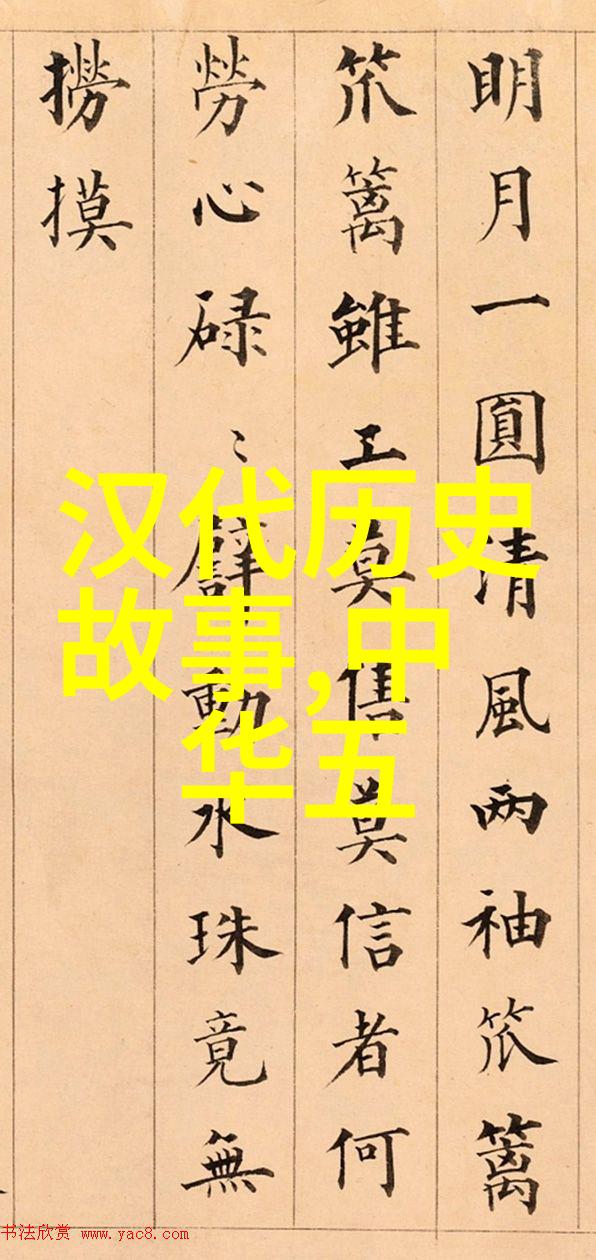 明月一圓清風两袖笊篱
笊篱雖工莫售莫信者何
勞心碌〻譬動水珠竟無
撈摸
汉代历史
故事,中
华五
书法欣赏 www.yac8.com